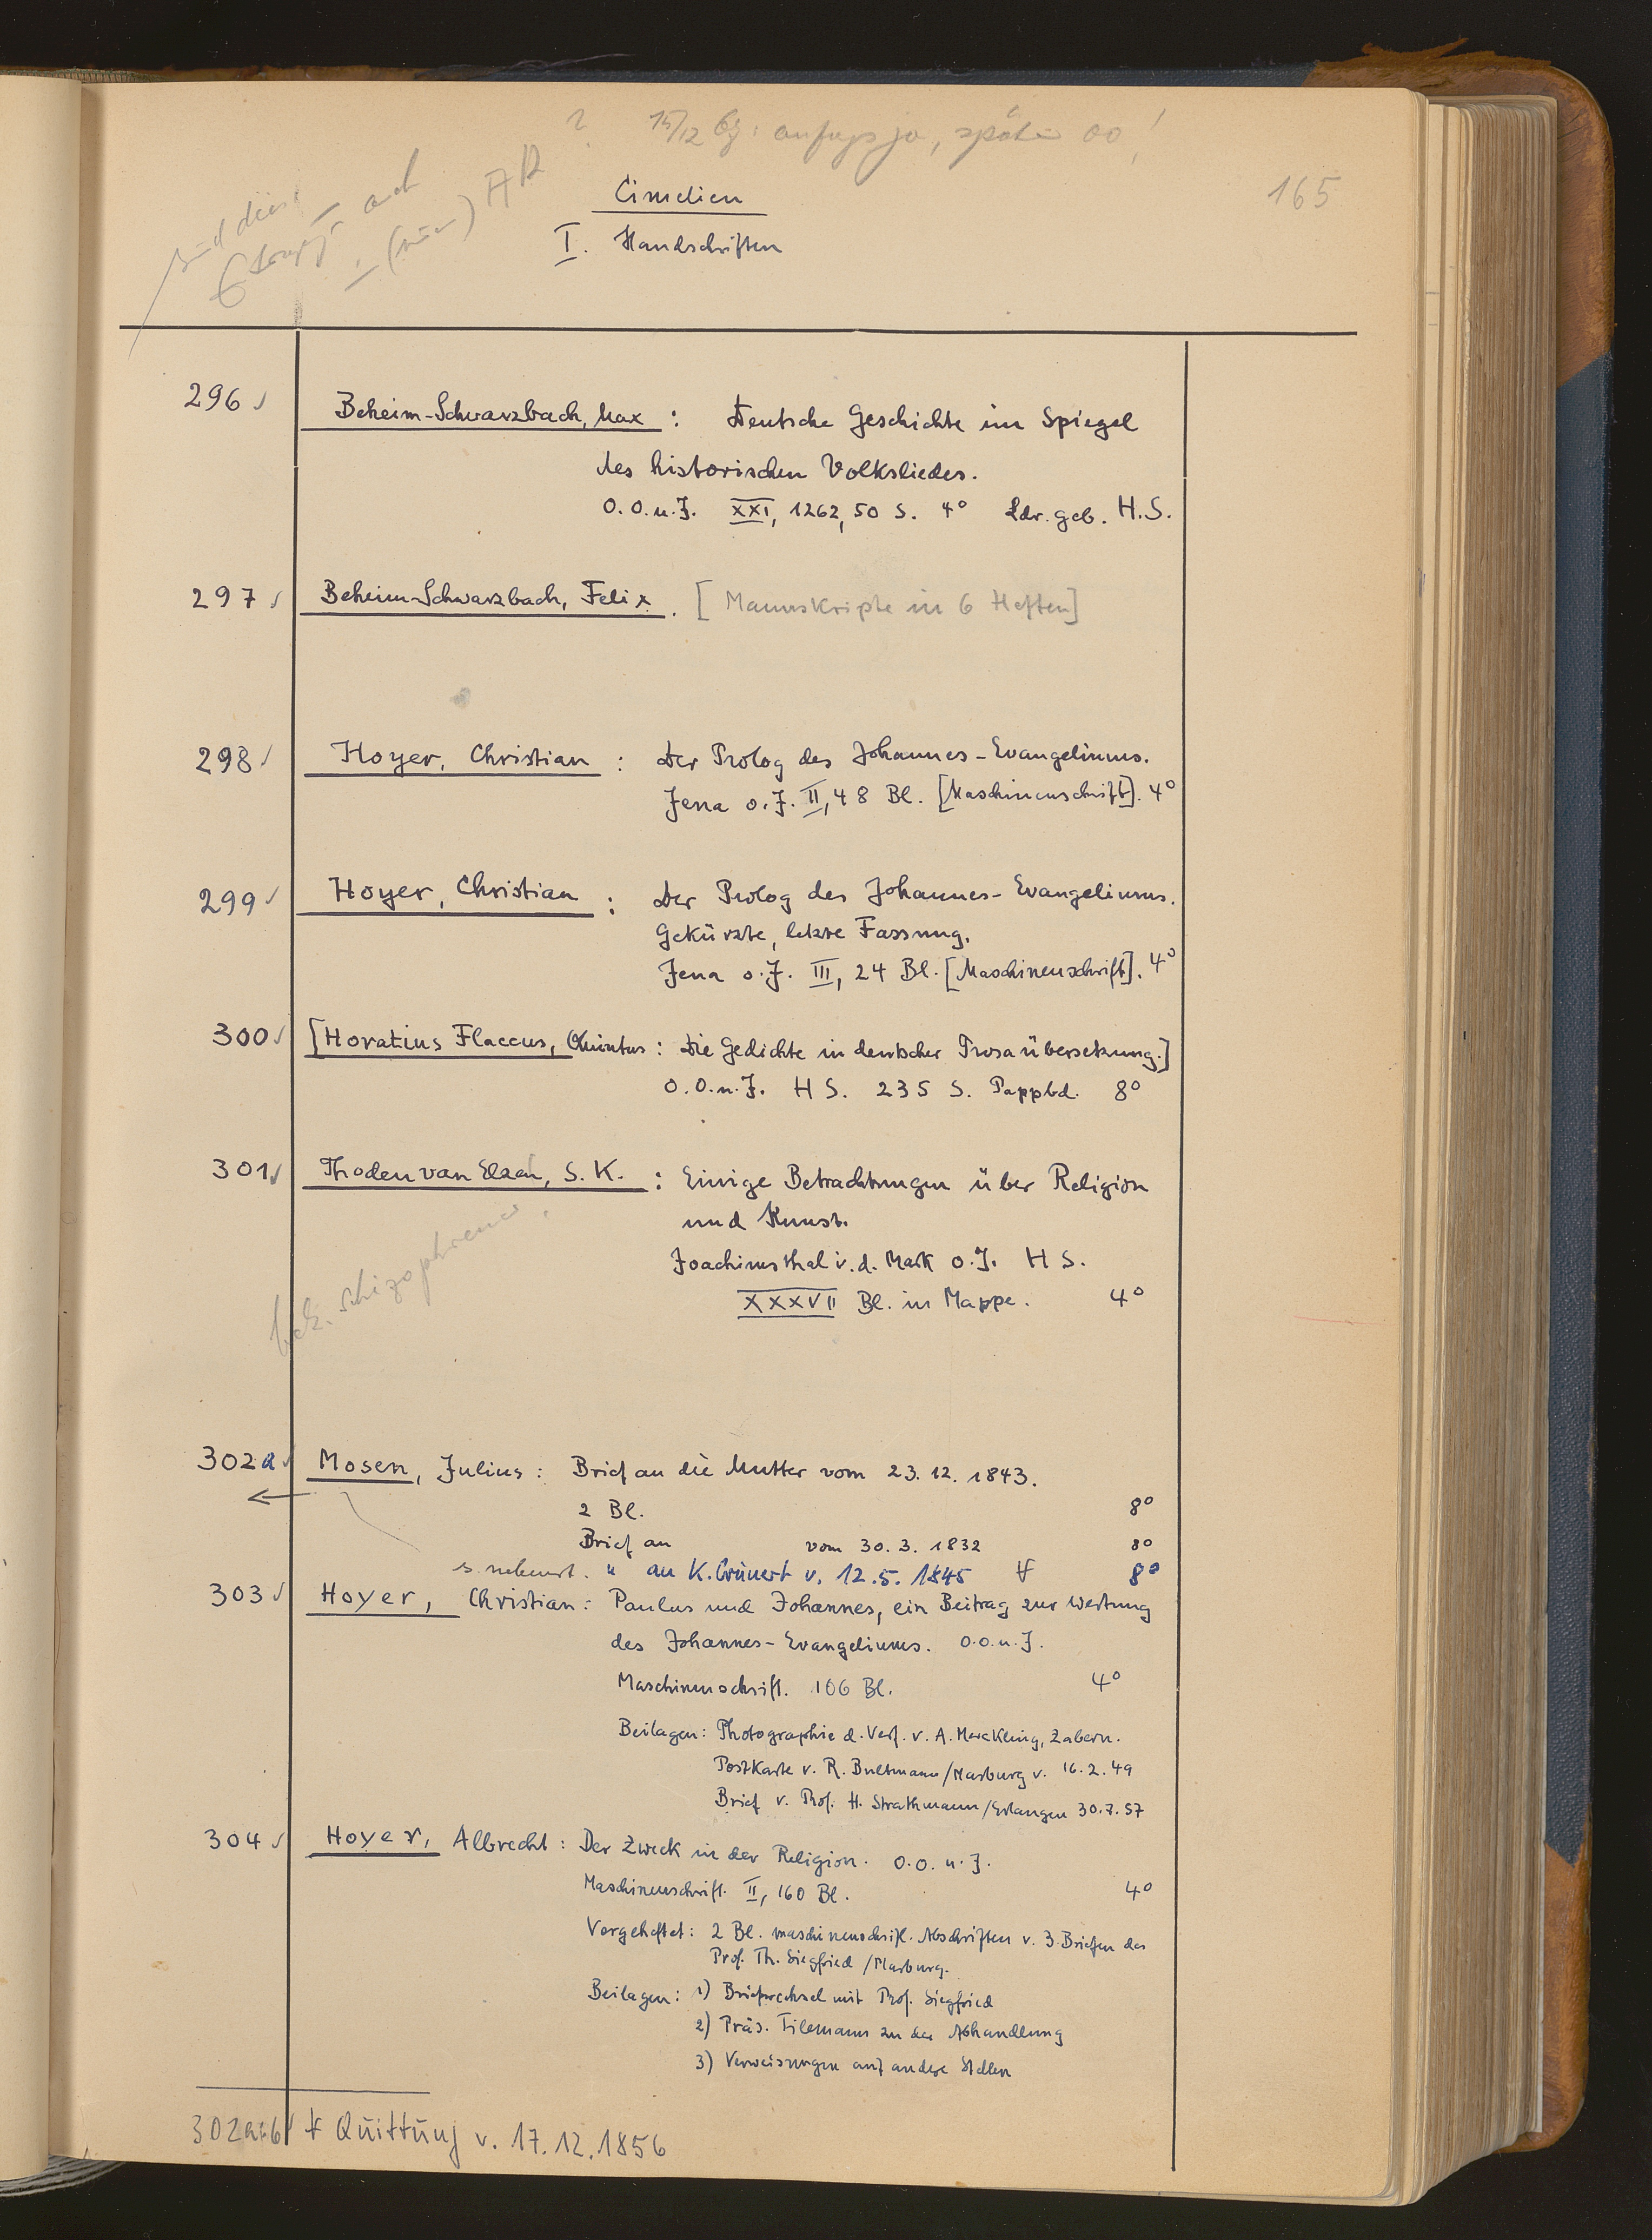 15/12 anfangs ja, später oo!
165
Cimelien
I. Handschriften
296 Beheim-Schwarzbach, Max : Deutsche Geschichte im Spiegel
des historischen Volksliedes.
O.O.u.J. XXI, 1262, 50 S. 4° Ldr. geb. H.S.
297 Beheim-Schwarzbach, Felix. [Manuskripte in 6 Heften]
298 Hoyer, Christian : Der Prolog des Johannes-Evangeliums.
Jena o.J. II, 48 Bl. [Maschinenschrift]. 4°
299 Hoyer, Christian : Der Prolog des Johannes-Evangeliums.
Gekürzte, letzte Fassung.
Jena o.J. III, 24 Bl. [Maschinenschrift]. 4°
300 [Horatius Flaccus, Quintus : Die Gedichte in deutscher Prosaübersetzung.]
O.O.u.J. HS. 235 S. Pappbd. 8°
301 Thoden van Elzen, S.K. : Einige Betrachtungen über Religion
und Kunst.
Joachimsthal i.d. Mark o.J. HS.
XXXVII Bl. in Mappe. 4°
schizophrenes
302a Mosen, Julius : Brief an die Mutter vom 23.12.1843.
2 Bl. 8°
Brief an vom 30.3.1832 8°
" an K. Grünert v. 12.5.1845 8°
303 Hoyer, Christian : Paulus und Johannes, ein Beitrag zur Wertung
des Johannes-Evangeliums. O.O.u.J.
Maschinenschrift. 106 Bl. 4°
Beilagen: Photographie d. Verf. v. A. Merckling, Zabern.
Postkarte v. R. Bultmann/Marburg v. 16.2.49
Brief v. Prof. H. Strathmann/Erlangen 30.7.57
304 Hoyer, Albrecht : Der Zweck in der Religion. O.O.u.J.
Maschinenschrift. II, 160 Bl. 4°
Vorgeheftet: 2 Bl. maschinenschriftl. Abschriften v. 3 Briefen des
Prof. Th. Siegfried/Marburg.
Beilagen: 1) Briefwechsel mit Prof. Siegfried
2) Präs. Tilemann zu der Abhandlung
3) Verweisungen auf andere Stellen
302a:b Quittung v. 17.12.1856